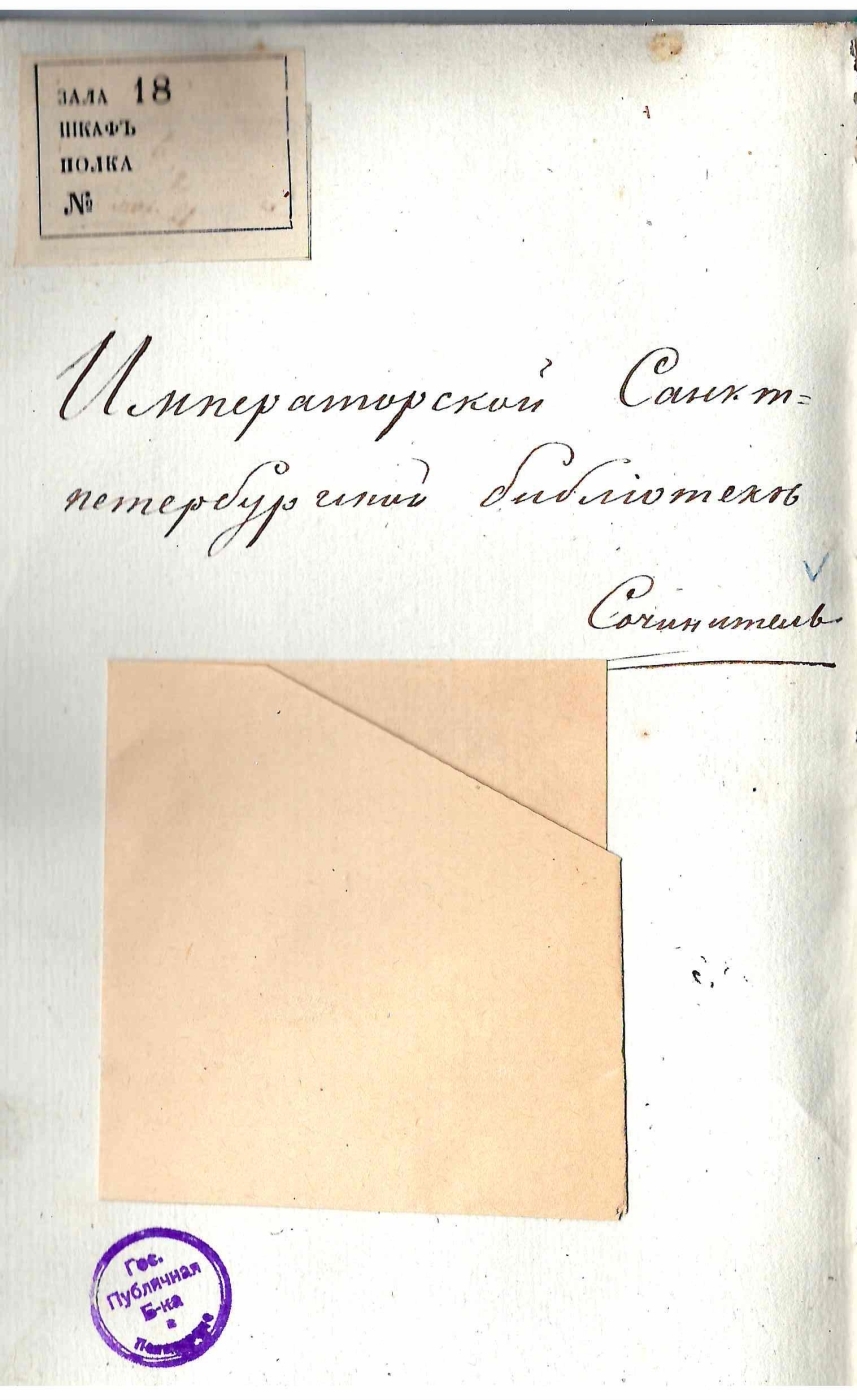 ЗАЛА 18
ШКАФЪ
ПОЛКА
№
Императорской Санкт=
петербургской библіотекѣ
Сочинитель.
Гос.
Публичная
Б-ка
в